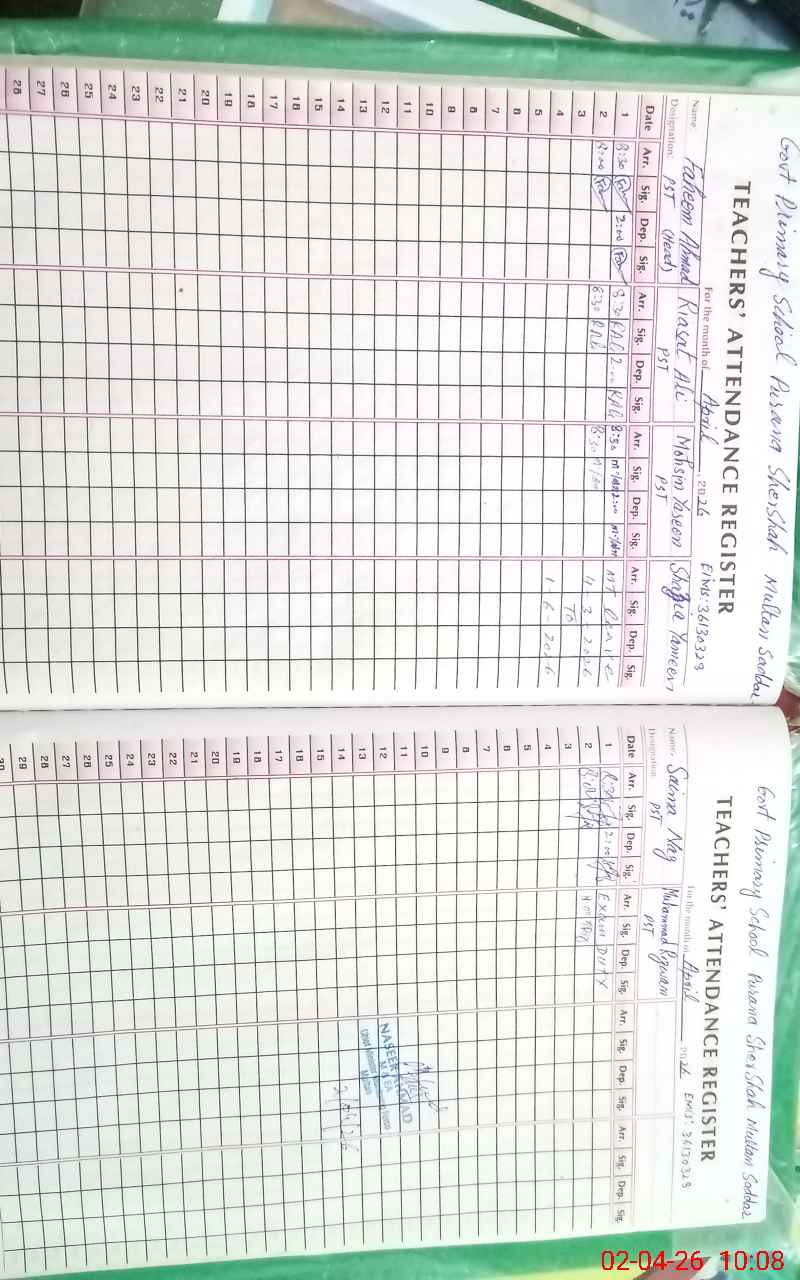 Govt Primary School Purana SherShah Multan Saddar
TEACHERS' ATTENDANCE REGISTER
For the month of April, 2026 EMIS: 36130329
Name: Faheem Ahmad Riasat Ali Mohsin Yaseen Shazia Yameen
Designation: PST (Head) PST PST
Date Arr. Sig. Dep. Sig. Arr. Sig. Dep. Sig. Arr. Sig. Dep. Sig. Arr. Sig. Dep. Sig.
1 8:30 2:00 8:30 RALI 2 RALI 8:30 2:00 Leave
2 8:00 8:30 RALI 8:30 4-3-2026
3 To
4 1-6-2026
5
6
7
8
9
10
11
12
13
14
15
16
17
18
19
20
21
22
23
24
25
26
27
28
Govt Primary School Purana SherShah Multan Saddar
TEACHERS' ATTENDANCE REGISTER
For the month of April 2026 EMIS: 36130329
Name: Saima Naz Muhammad Rizwan
Designation: PST PST
Date Arr. Sig. Dep. Sig. Arr. Sig. Dep. Sig. Arr. Sig. Dep. Sig. Arr. Sig. Dep. Sig.
1 8:30 2:00 Exam DUTY
2 8:00
3
4
5
6
7
8
9
10
11
12
13
14
15
16
17
18
19
20
21
22
23
24
25
26
27
28
29
30
NASEER AHMAD
M & EA
Multan
2/04/26
02-04-26 10:08